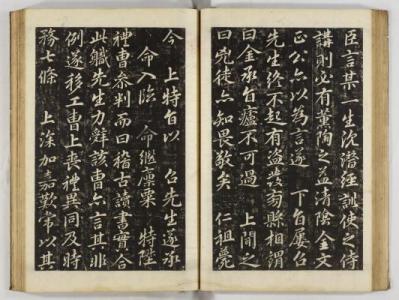 臣言某一生沈潛經訓使之侍
講則必有薰陶之益清陰金文
正公亦以為言遂 下旨屢召
先生終不起有盜發旁縣相謂
曰金承旨廬不可過 上聞之
曰兇徒亦知畏敬矣 仁祖薨
今 上特旨以 召先生遂承
命入臨 命繼廩粟 特陞
禮曹參判而曰稽古讀書實合
此職先生力辭該曹亦言其非
例遂移工曹上喪禮異同及時
務七條 上深加嘉歎常以其